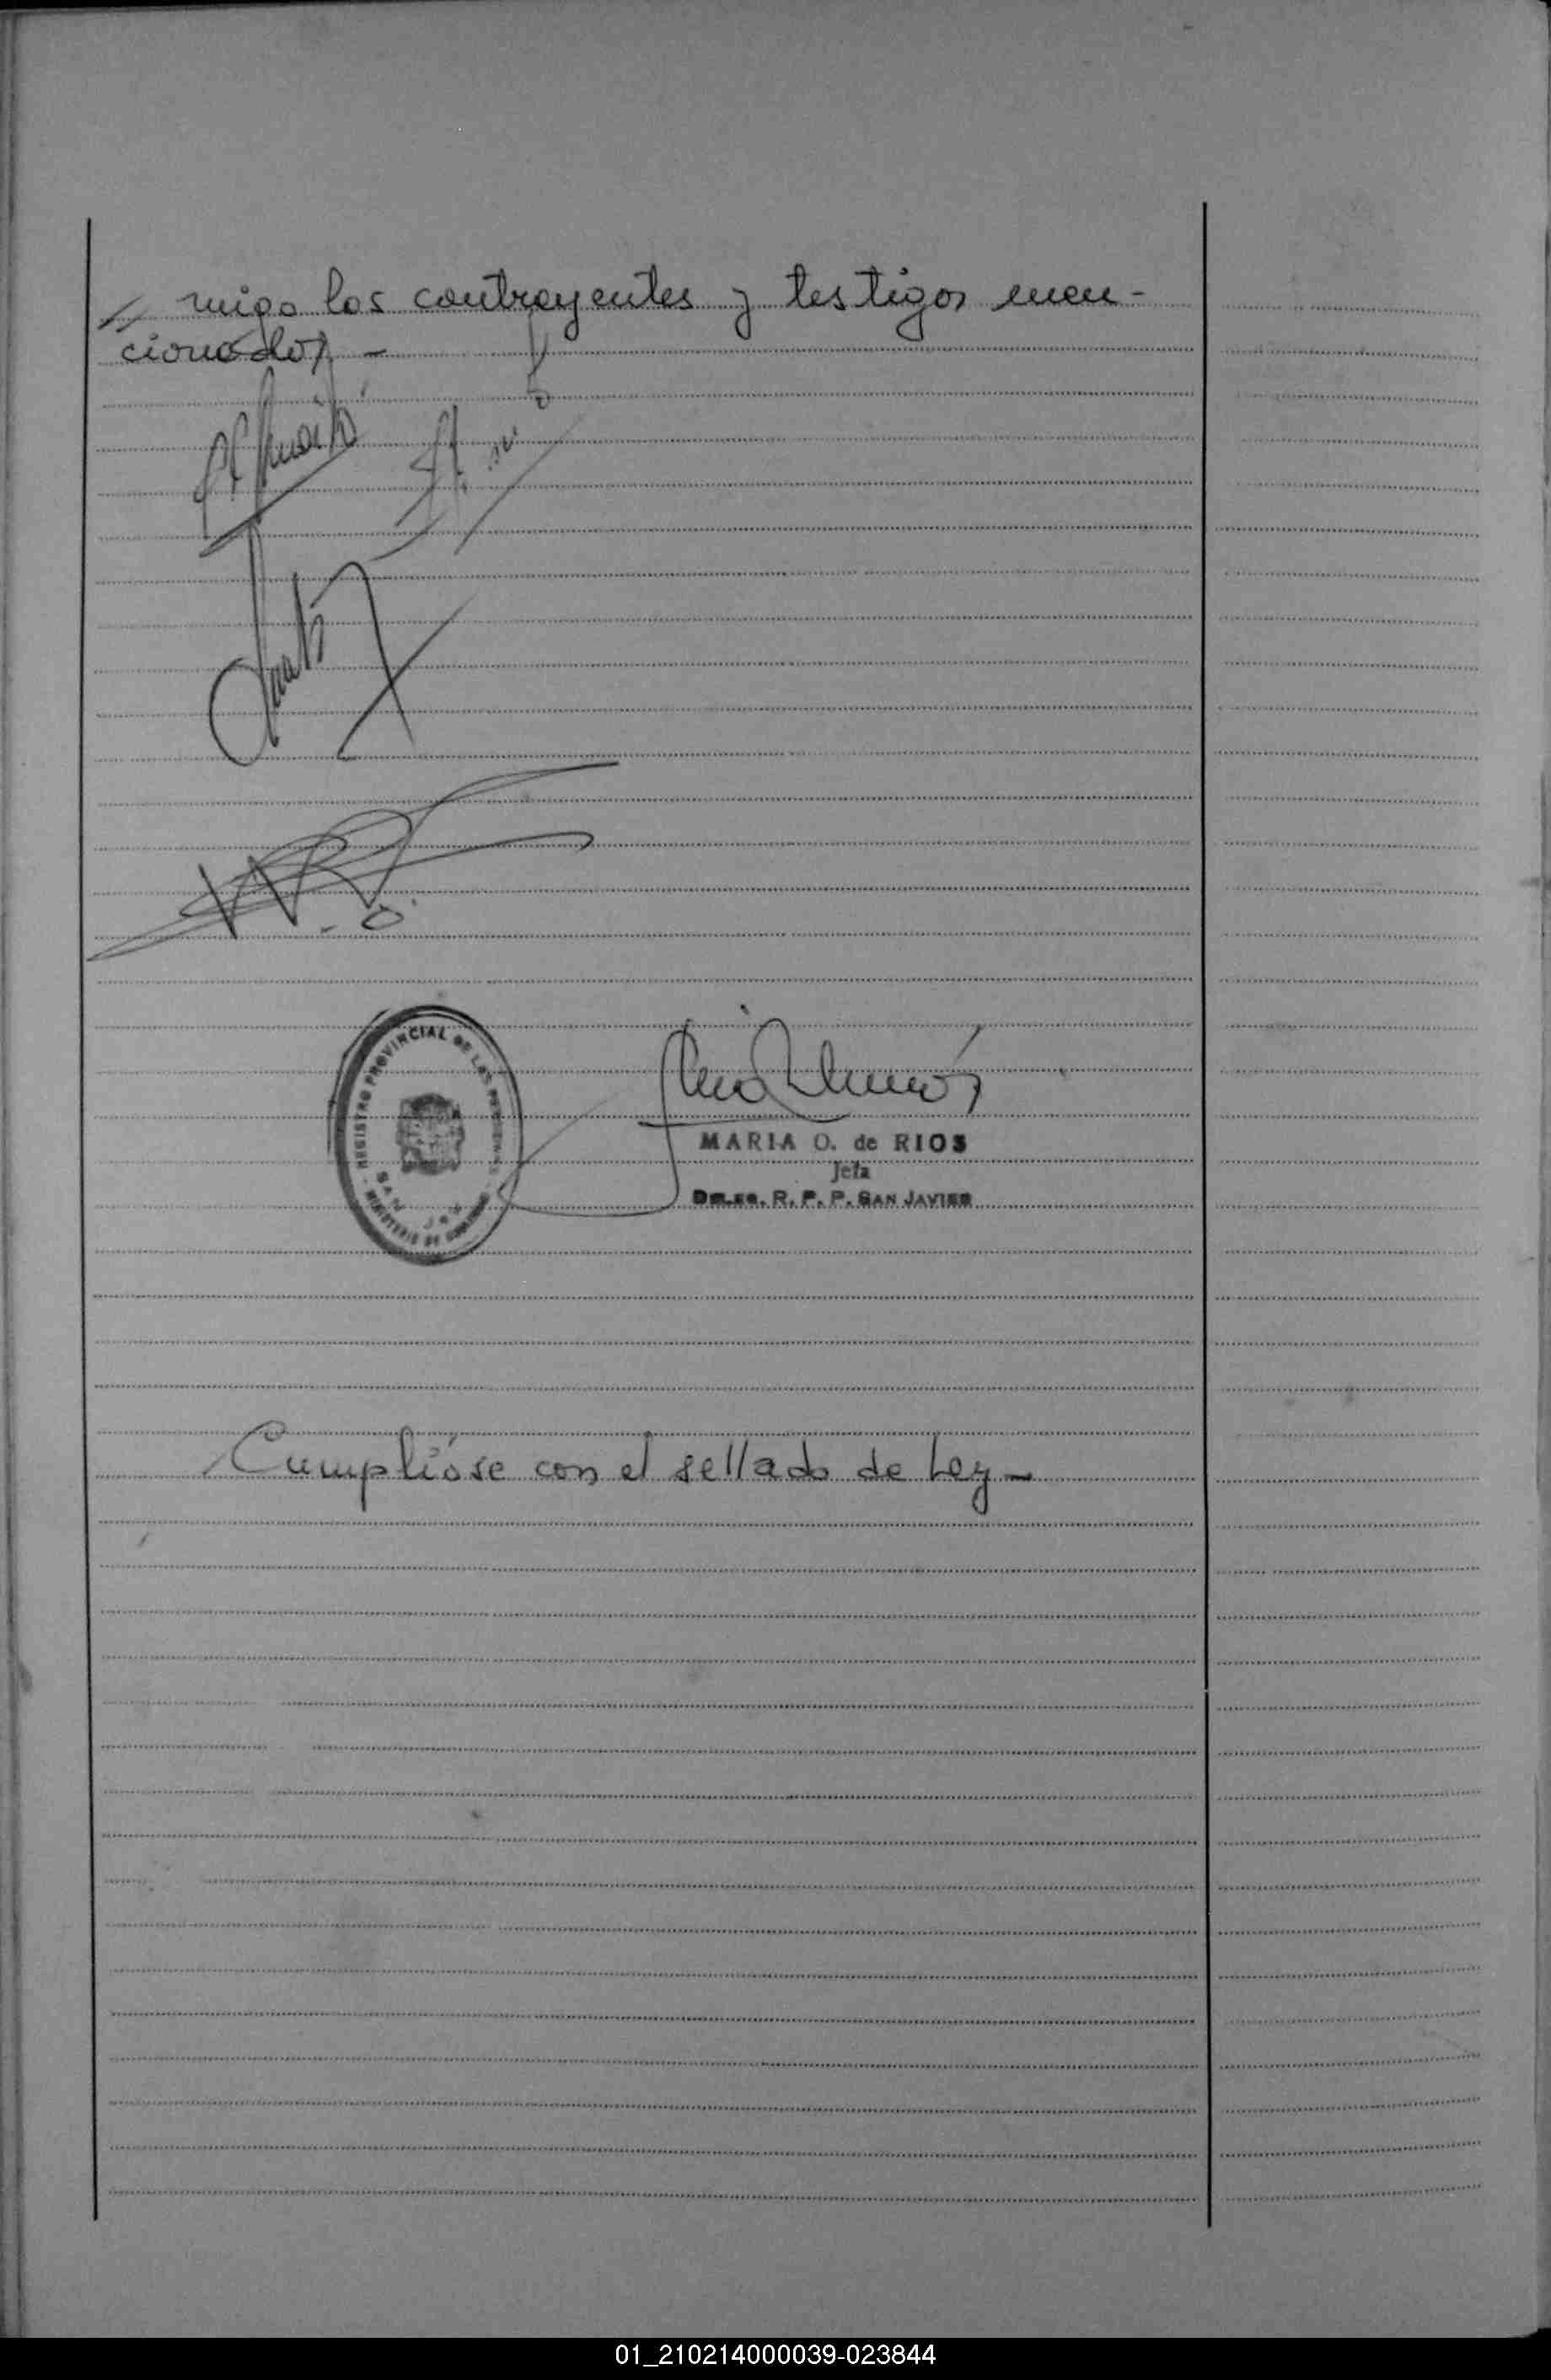 // migo los contrayentes y testigos men-
cionados. -
REGISTRO PROVINCIAL DE LAS PERSONAS
SAN JAV
MINISTERIO DE GOBIERNO
MARIA O. de RIOS
Jefa
DELEG. R. P. P. SAN JAVIER
Cumplióse con el sellado de Ley -
01_210214000039-023844